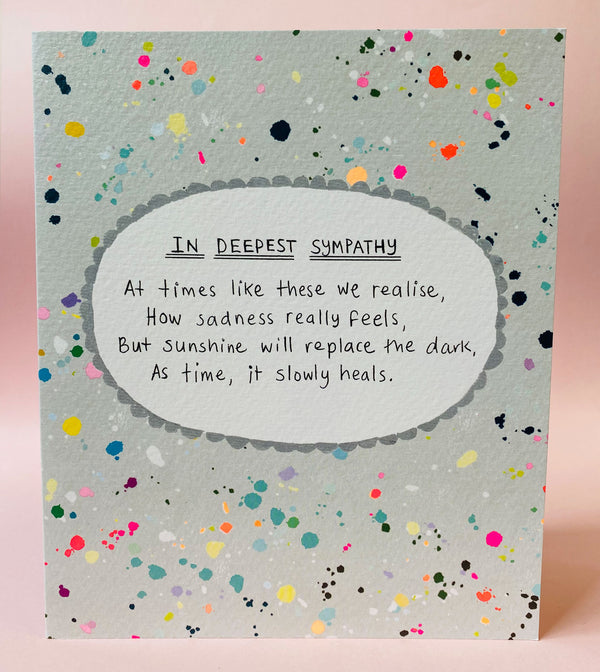 IN DEEPEST SYMPATHY
At times like these we realise,
How sadness really feels,
But sunshine will replace the dark,
As time, it slowly heals.